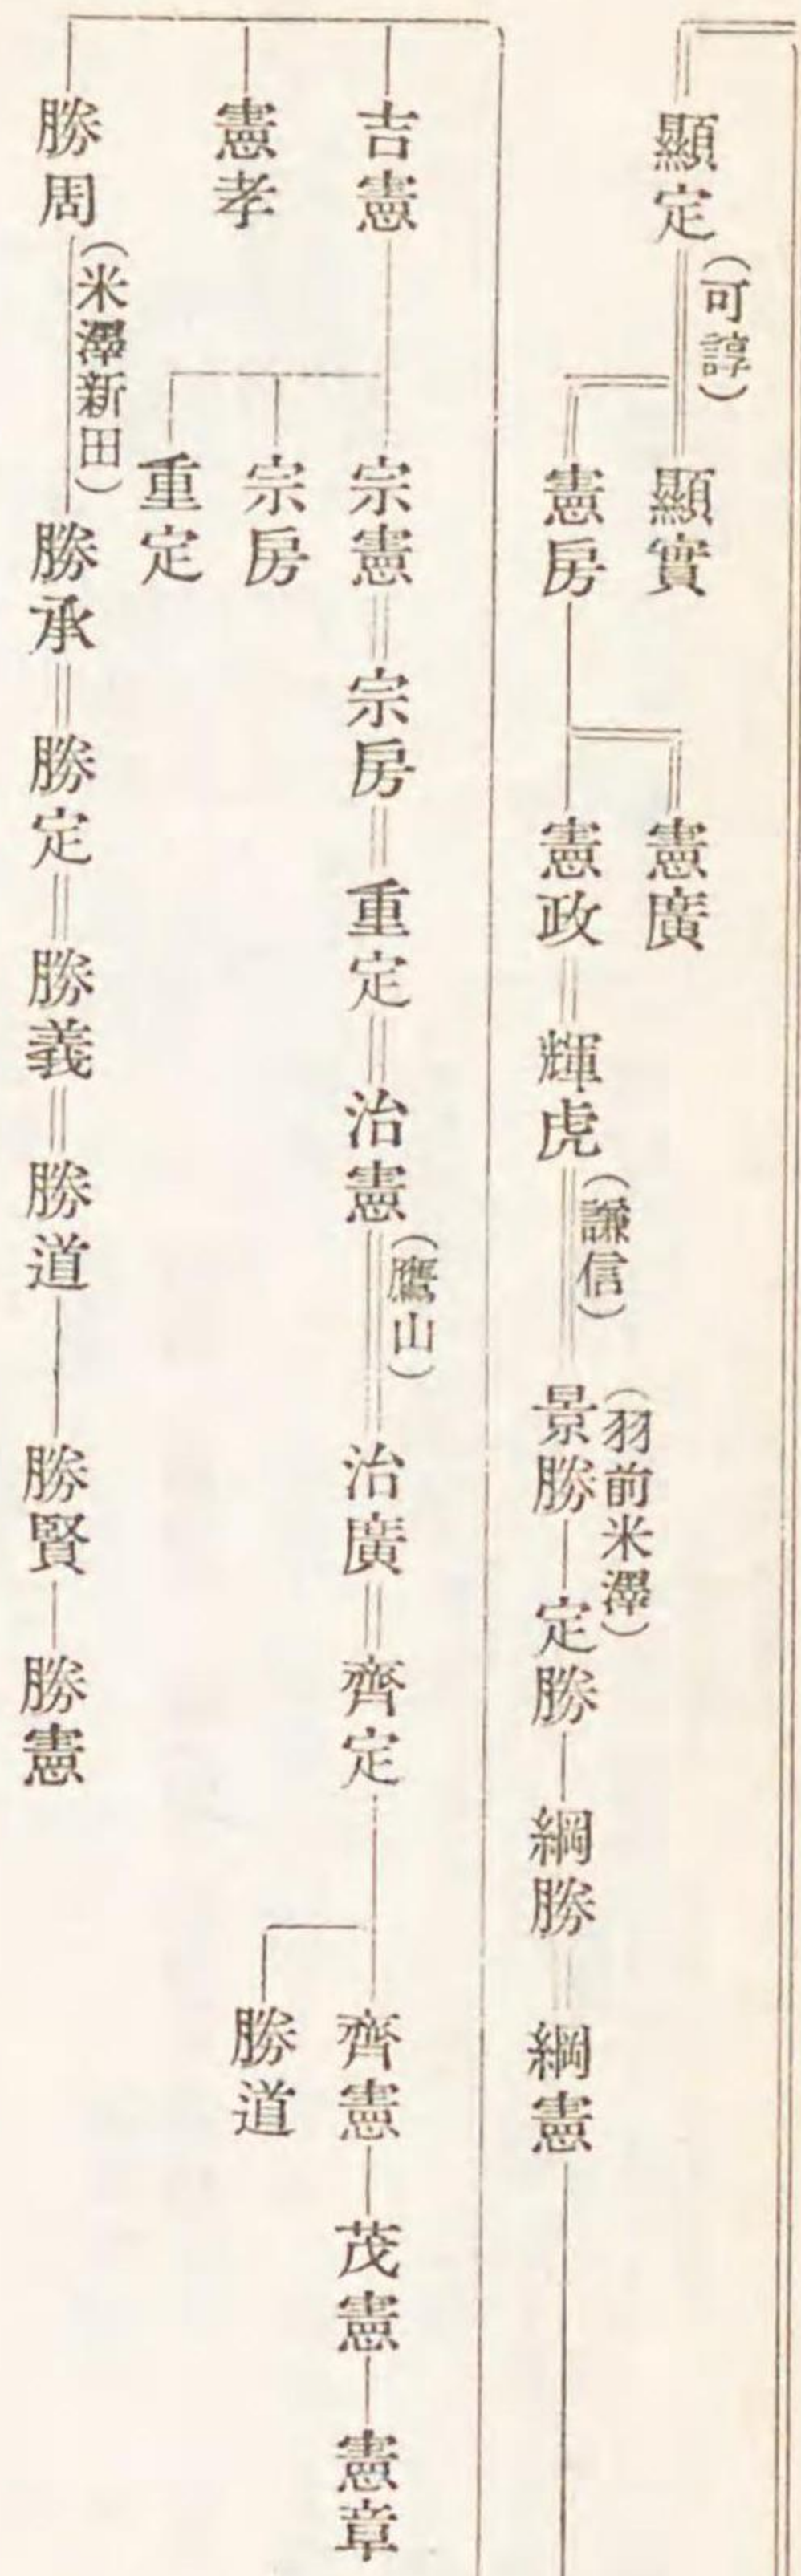 顯定
(可諄)
顯實
憲房
憲廣
憲政
輝虎
(謙信)
(羽前米澤)
景勝
定勝
綱勝
綱憲
吉憲
宗憲
宗房
重定
治憲
(鷹山)
治廣
齊定
齊憲
茂憲
憲章
勝道
宗房
重定
憲孝
勝周
(米澤新田)
勝承
勝定
勝義
勝道
勝賢
勝憲